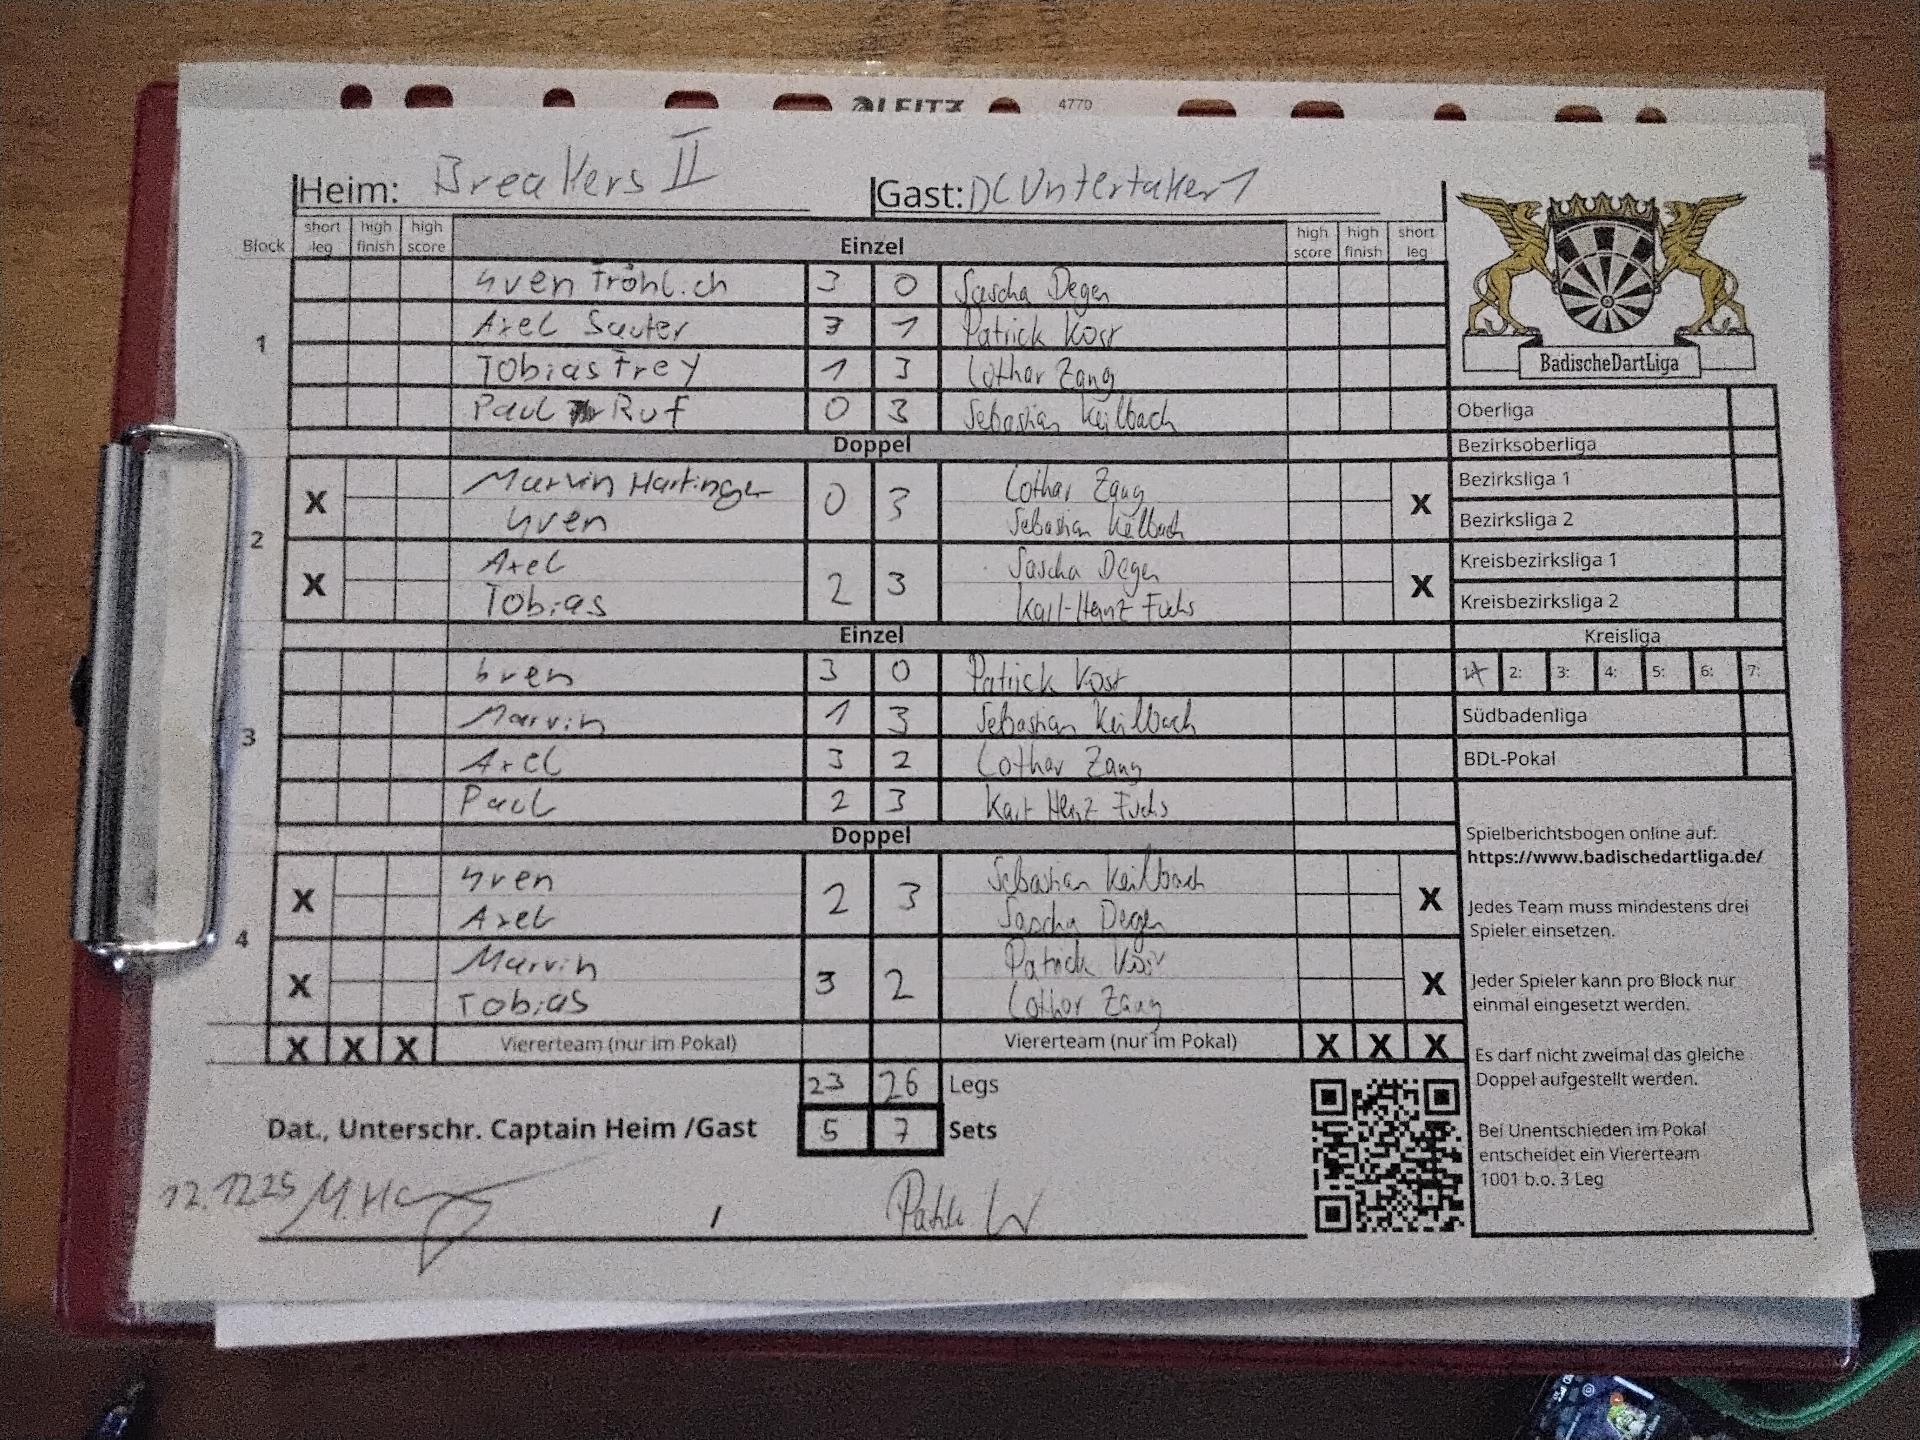 LEITZ 4770
Heim: Breakers II Gast: DC Untertaker 1
Block short leg high finish high score Einzel high score high finish short leg
1
Sven Fröhlich 3 0 Sascha Degen
Axel Sauter 3 1 Patrick Kost
Tobias Frey 1 3 Lothar Zang
Paul Ruf 0 3 Sebastian Keilbach
Doppel
2
X Marvin Hartinger 0 3 Lothar Zang X
Sven Sebastian Keilbach
X Axel 2 3 Sascha Degen X
Tobias Karl-Heinz Fuchs
Einzel
3
Sven 3 0 Patrick Kost
Marvin 1 3 Sebastian Keilbach
Axel 3 2 Lothar Zang
Paul 2 3 Karl Heinz Fuchs
Doppel
4
X Sven 2 3 Sebastian Keilbach X
Axel Sascha Degen
X Marvin 3 2 Patrick Kost X
Tobias Lothar Zang
X X X Viererteam (nur im Pokal) Viererteam (nur im Pokal) X X X
23 26 Legs
Dat., Unterschr. Captain Heim /Gast 5 7 Sets
12.12.25 /
BadischeDartLiga
Oberliga
Bezirksoberliga
Bezirksliga 1
Bezirksliga 2
Kreisbezirksliga 1
Kreisbezirksliga 2
Kreisliga
1: X 2: 3: 4: 5: 6: 7:
Südbadenliga
BDL-Pokal
Spielberichtsbogen online auf:
https://www.badischedartliga.de/
Jedes Team muss mindestens drei
Spieler einsetzen.
Jeder Spieler kann pro Block nur
einmal eingesetzt werden.
Es darf nicht zweimal das gleiche
Doppel aufgestellt werden.
Bei Unentschieden im Pokal
entscheidet ein Viererteam
1001 b.o. 3 Leg